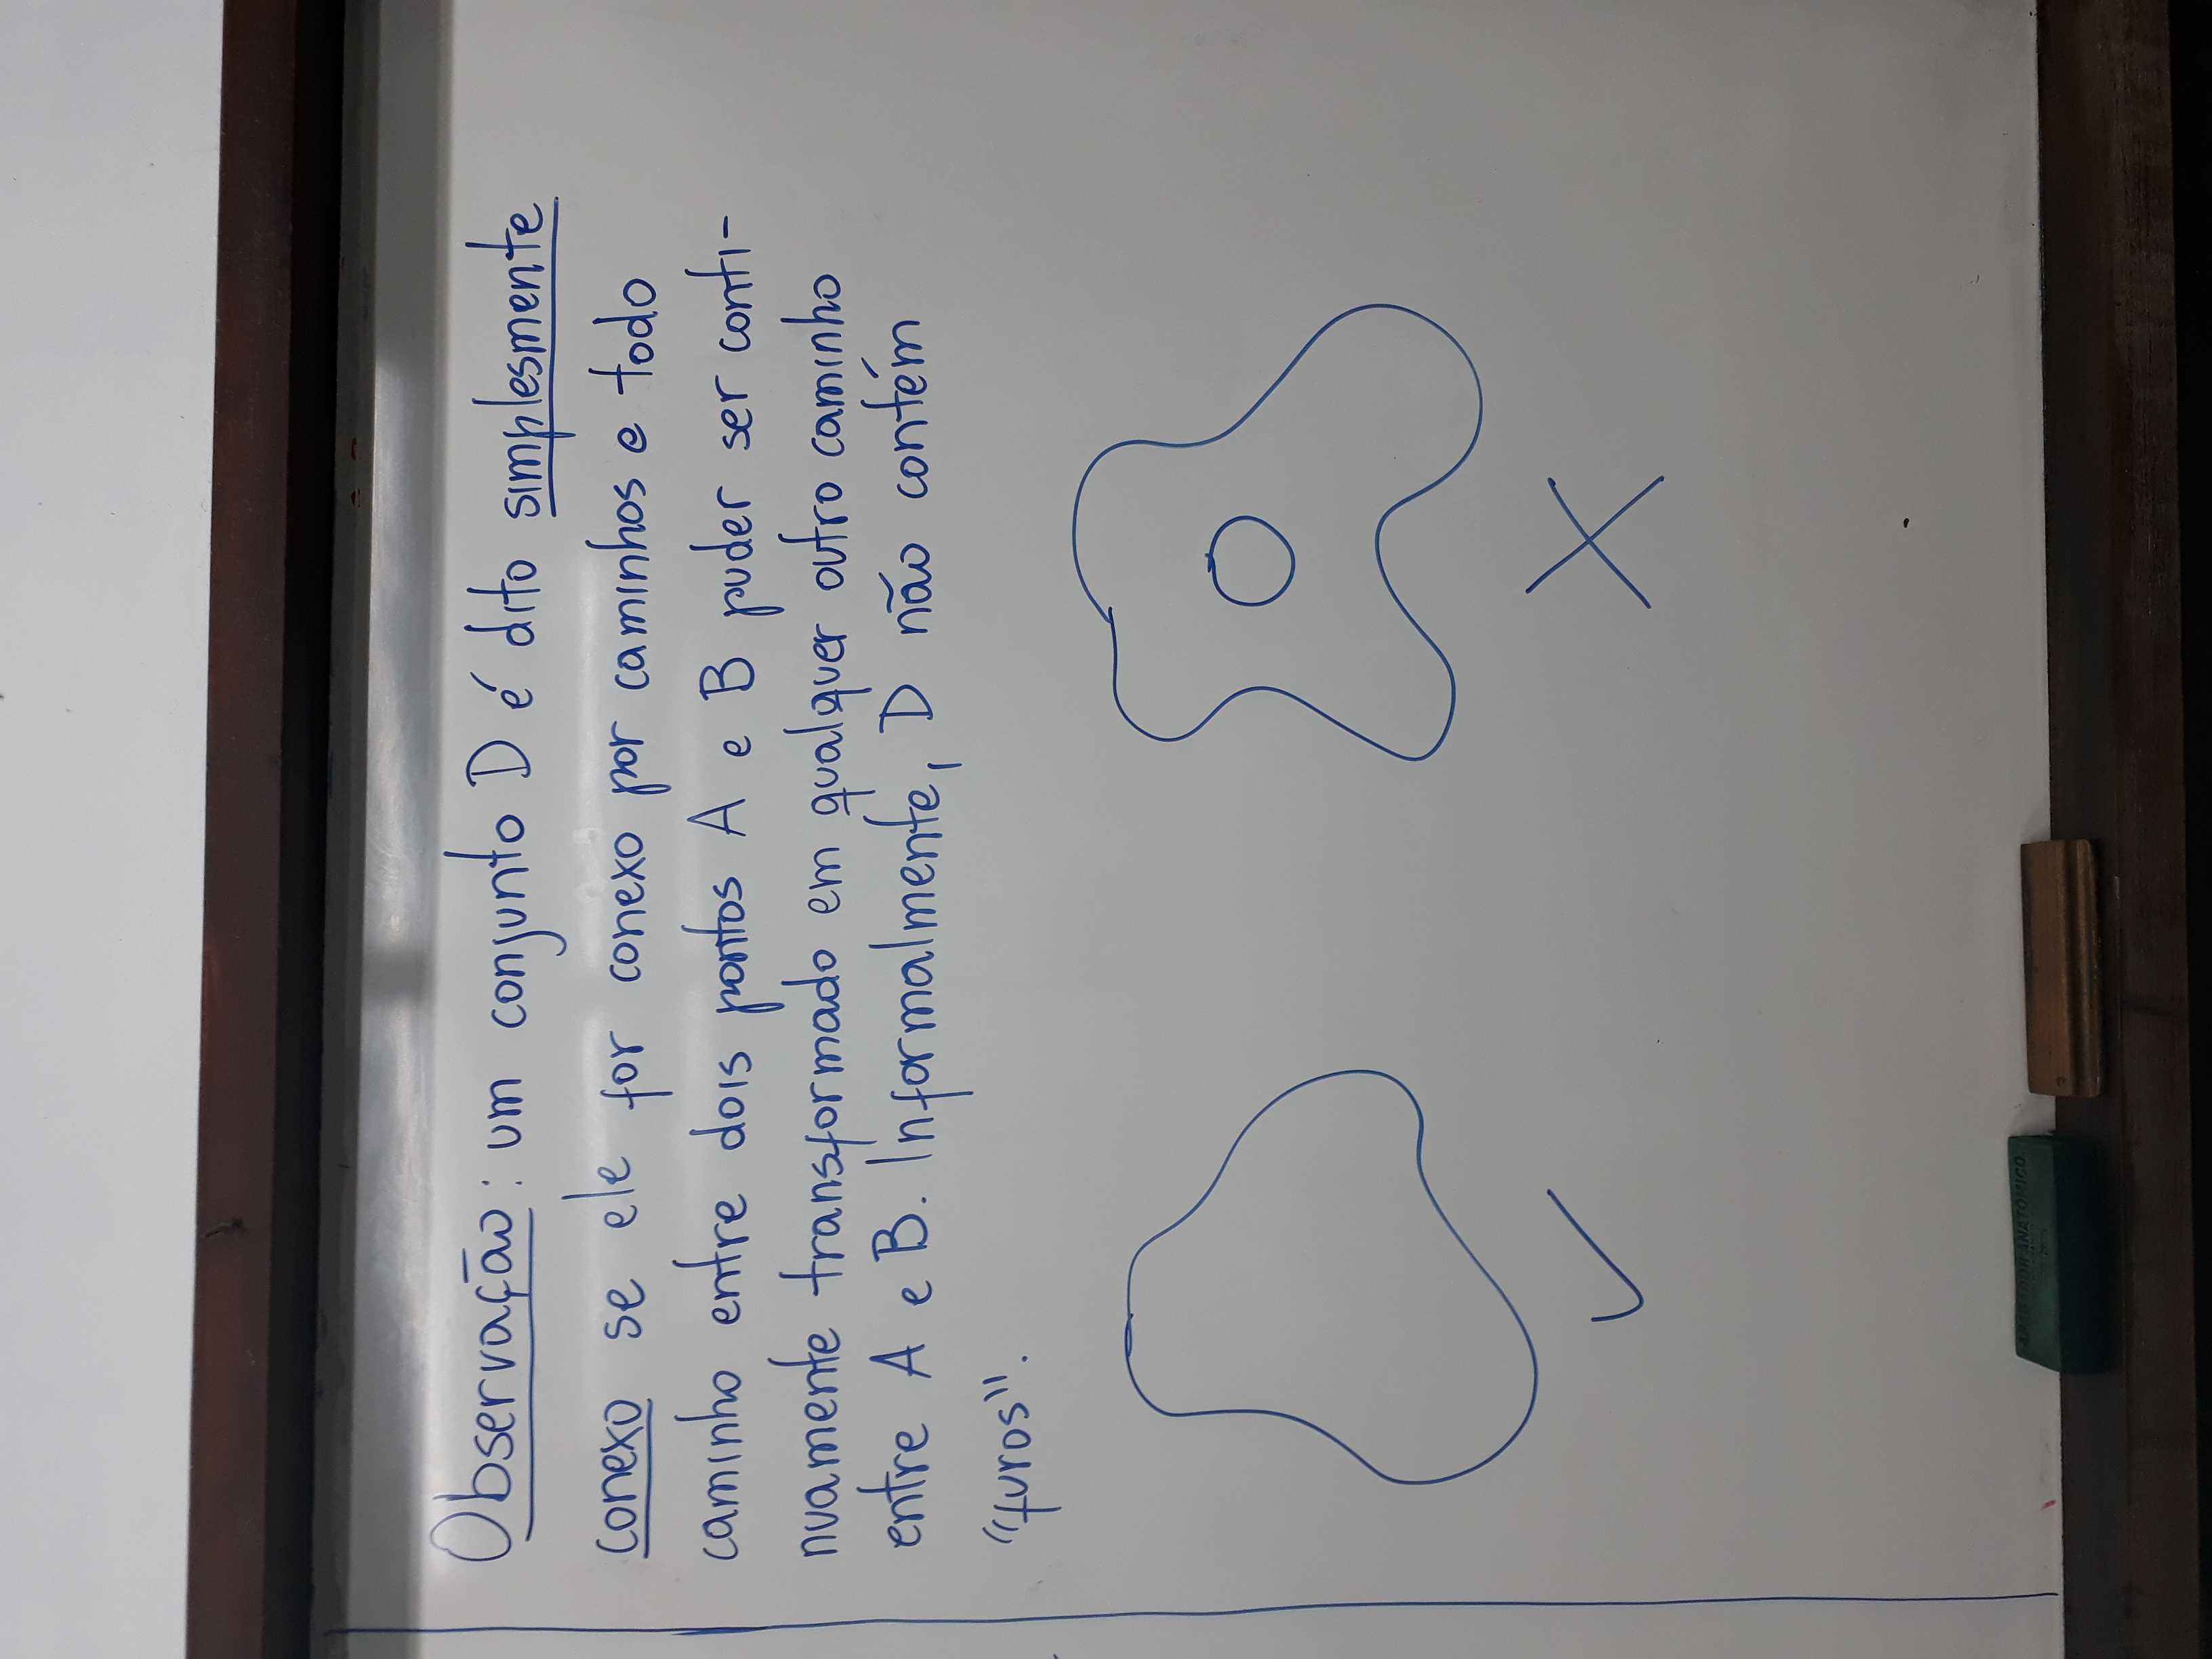 Observação: um conjunto D é dito simplesmente
conexo se ele for conexo por caminhos e todo
caminho entre dois pontos A e B puder ser conti-
nuamente transformado em qualquer outro caminho
entre A e B. Informalmente, D não contém
“furos”.
APAGADOR ANATÔMICO